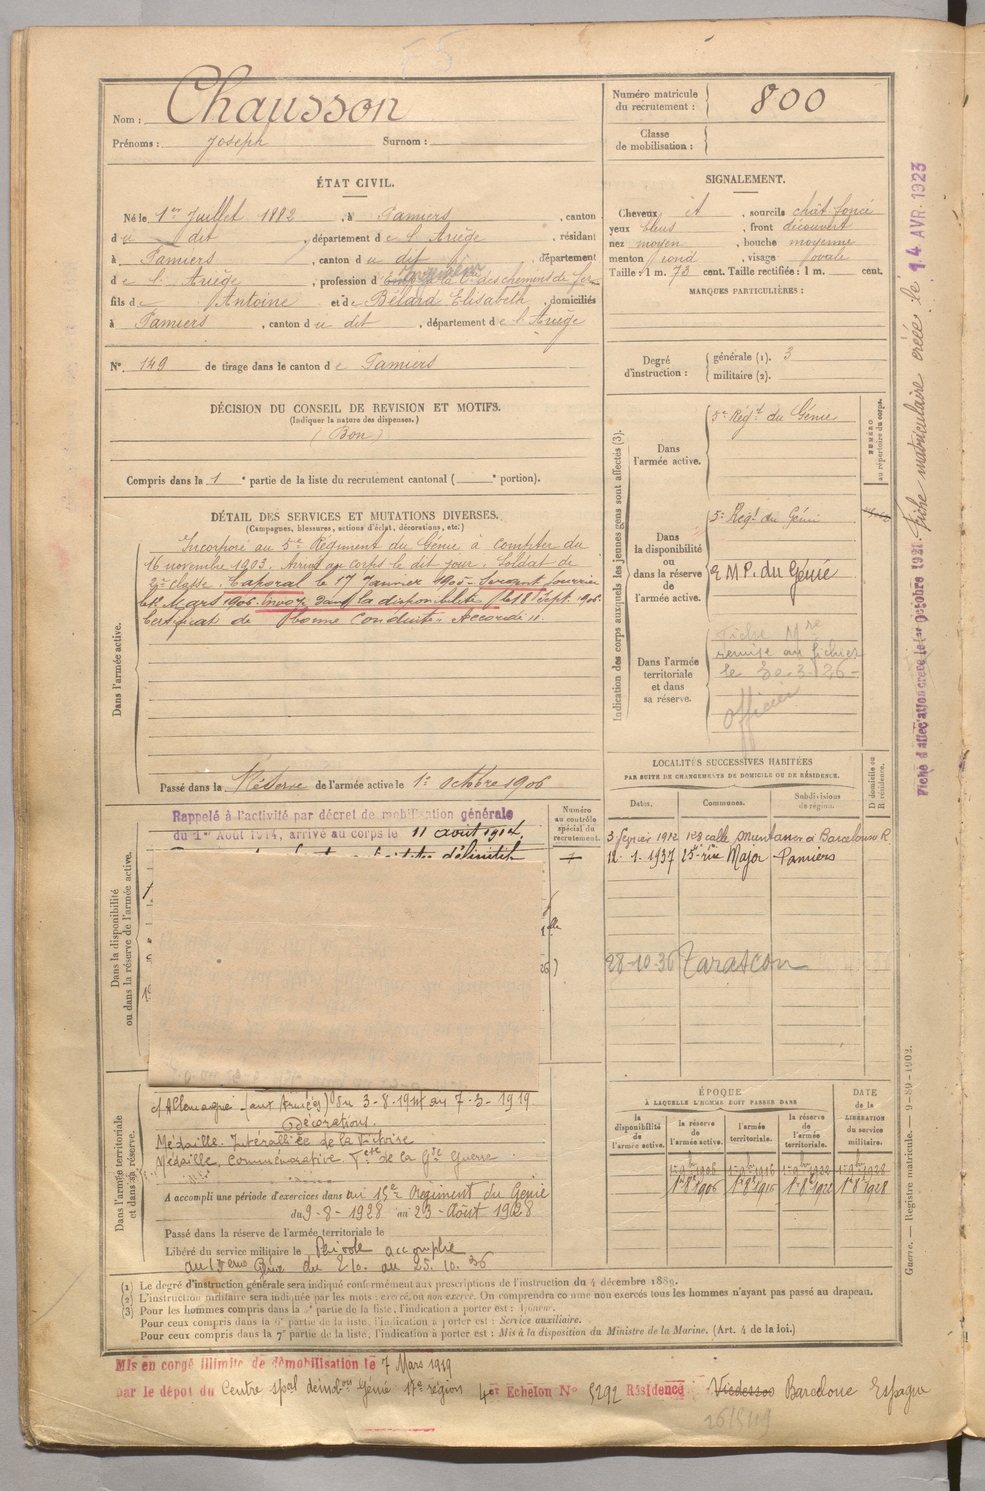 Nom : Chausson
Prénoms : Joseph Surnom :
Numéro matricule du recrutement : 800
Classe de mobilisation :
ÉTAT CIVIL.
Né le 1er Juillet 1882, à Pamiers, canton
du dit, département de l'Ariège, résidant
à Pamiers, canton du dit, département
de l'Ariège, profession d
fils d'Antoine et de Bélard Elisabeth, domiciliés
à Pamiers, canton du dit, département de l'Ariège
N° 149 de tirage dans le canton de Pamiers
SIGNALEMENT.
Cheveux et, sourcils chat foncé
yeux bleus, front découvert
nez moyen, bouche moyenne
menton rond, visage ovale
Taille : 1 m. 73 cent. Taille rectifiée : 1 m. cent.
MARQUES PARTICULIÈRES :
Degré d'instruction : générale (1). 3
militaire (2).
DÉCISION DU CONSEIL DE REVISION ET MOTIFS.
(Indiquer la nature des dispenses.)
(Bon)
Compris dans la 1e partie de la liste du recrutement cantonal ( e portion).
DÉTAIL DES SERVICES ET MUTATIONS DIVERSES.
(Campagnes, blessures, actions d'éclat, décorations, etc.)
Dans l'armée active.
Incorporé au 5e Régiment du Génie à compter du
16 novembre 1903. Arrivé au corps le dit jour. Soldat de
2e classe. Caporal le 17 Janvier 1905. Sergent fourrier
le 1er Mars 1906. Envoyé dans la disponibilité le 18 Sept. 1906.
Certificat de Bonne Conduite Accordé
Passé dans la Réserve de l'armée active le 1er octobre 1906
Indication des corps auxquels les jeunes gens sont affectés (3).
NUMÉRO au répertoire du corps.
Dans l'armée active.
5e Régt du Génie
Dans la disponibilité ou dans la réserve de l'armée active.
5e Régt du Génie
E M P. du Génie
Dans l'armée territoriale et dans sa réserve.
Fiche Mre
remise au fichier
le 30-3-26-
Officier
Fiche matriculaire créée le 14 AVR. 1923
Fiche d'affectation créée le 1er Octobre 1921
LOCALITÉS SUCCESSIVES HABITÉES
PAR SUITE DE CHANGEMENTS DE DOMICILE OU DE RÉSIDENCE.
D domicile ou R résidence.
Dates. Communes. Subdivisions de région.
3 février 1912 128 calle muntaner à Barcelone R
12. 1. 1937 25 rue Major Pamiers
28-10-36 Tarascon
Dans la disponibilité ou dans la réserve de l'armée active.
Numéro au contrôle spécial du recrutement.
Rappelé à l'activité par décret de mobilisation générale
du 1er Août 1914, arrivé au corps le 11 août 1914.
Dans l'armée territoriale et dans sa réserve.
c/ Allemagne (aux Armées) du 3-8-1914 au 7-3-1919
Décorations.
Médaille Interalliée de la Victoire
Médaille Commémorative Fse de la Gde Guerre
A accompli une période d'exercices dans au 15e Régiment du Génie
du 9-8-1928 au 23-Août 1928
Passé dans la réserve de l'armée territoriale le
Libéré du service militaire le Période accomplie
du 210. au 25.10.36
ÉPOQUE
À LAQUELLE L'HOMME DOIT PASSER DANS
DATE de la LIBÉRATION du service militaire.
la disponibilité de l'armée active.
la réserve de l'armée active.
l'armée territoriale.
la réserve de l'armée territoriale.
1er 8bre 1906 1er 8bre 1916 1er 8bre 1922 1er 8bre 1928
(1) Le degré d'instruction générale sera indiqué conformément aux prescriptions de l'instruction du 4 décembre 1889.
(2) L'instruction militaire sera indiquée par les mots : exercé, ou non exercé. On comprendra comme non exercés tous les hommes n'ayant pas passé au drapeau.
(3) Pour les hommes compris dans la partie de la liste, l'indication à porter est :
Pour ceux compris dans la 6e partie de la liste, l'indication à porter est : Service auxiliaire.
Pour ceux compris dans la 7e partie de la liste, l'indication à porter est : Mis à la disposition du Ministre de la Marine. (Art. 4 de la loi.)
Guerre. — Registre matricule. — 9-89-1902.
Mis en congé illimité de démobilisation le 7 Mars 1919
par le dépôt du Centre spal démobon Génie 17e région 4er Echelon N° 5292 Résidence Vicdessos Barcelone Espagne